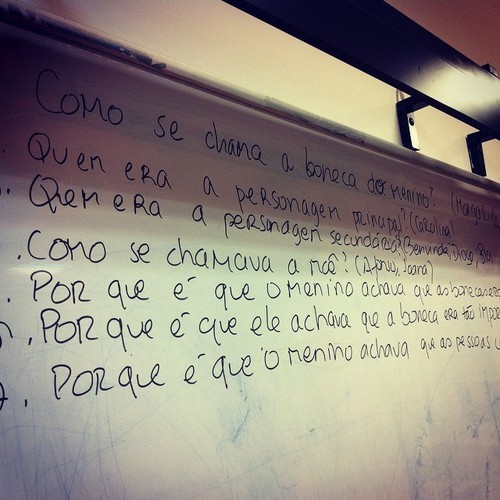 Como se chama a boneca do menino? (Margarida
Quem era a personagem principal? (Carolina)
Quem era a personagem secundária? (Bernardo, Diogo,
Como se chamava a mãe? (Afonso, Joana)
Por que é que o menino achava que as bonecas
Porque é que ele achava que a boneca era tão
Porque é que o menino achava que as pessoas